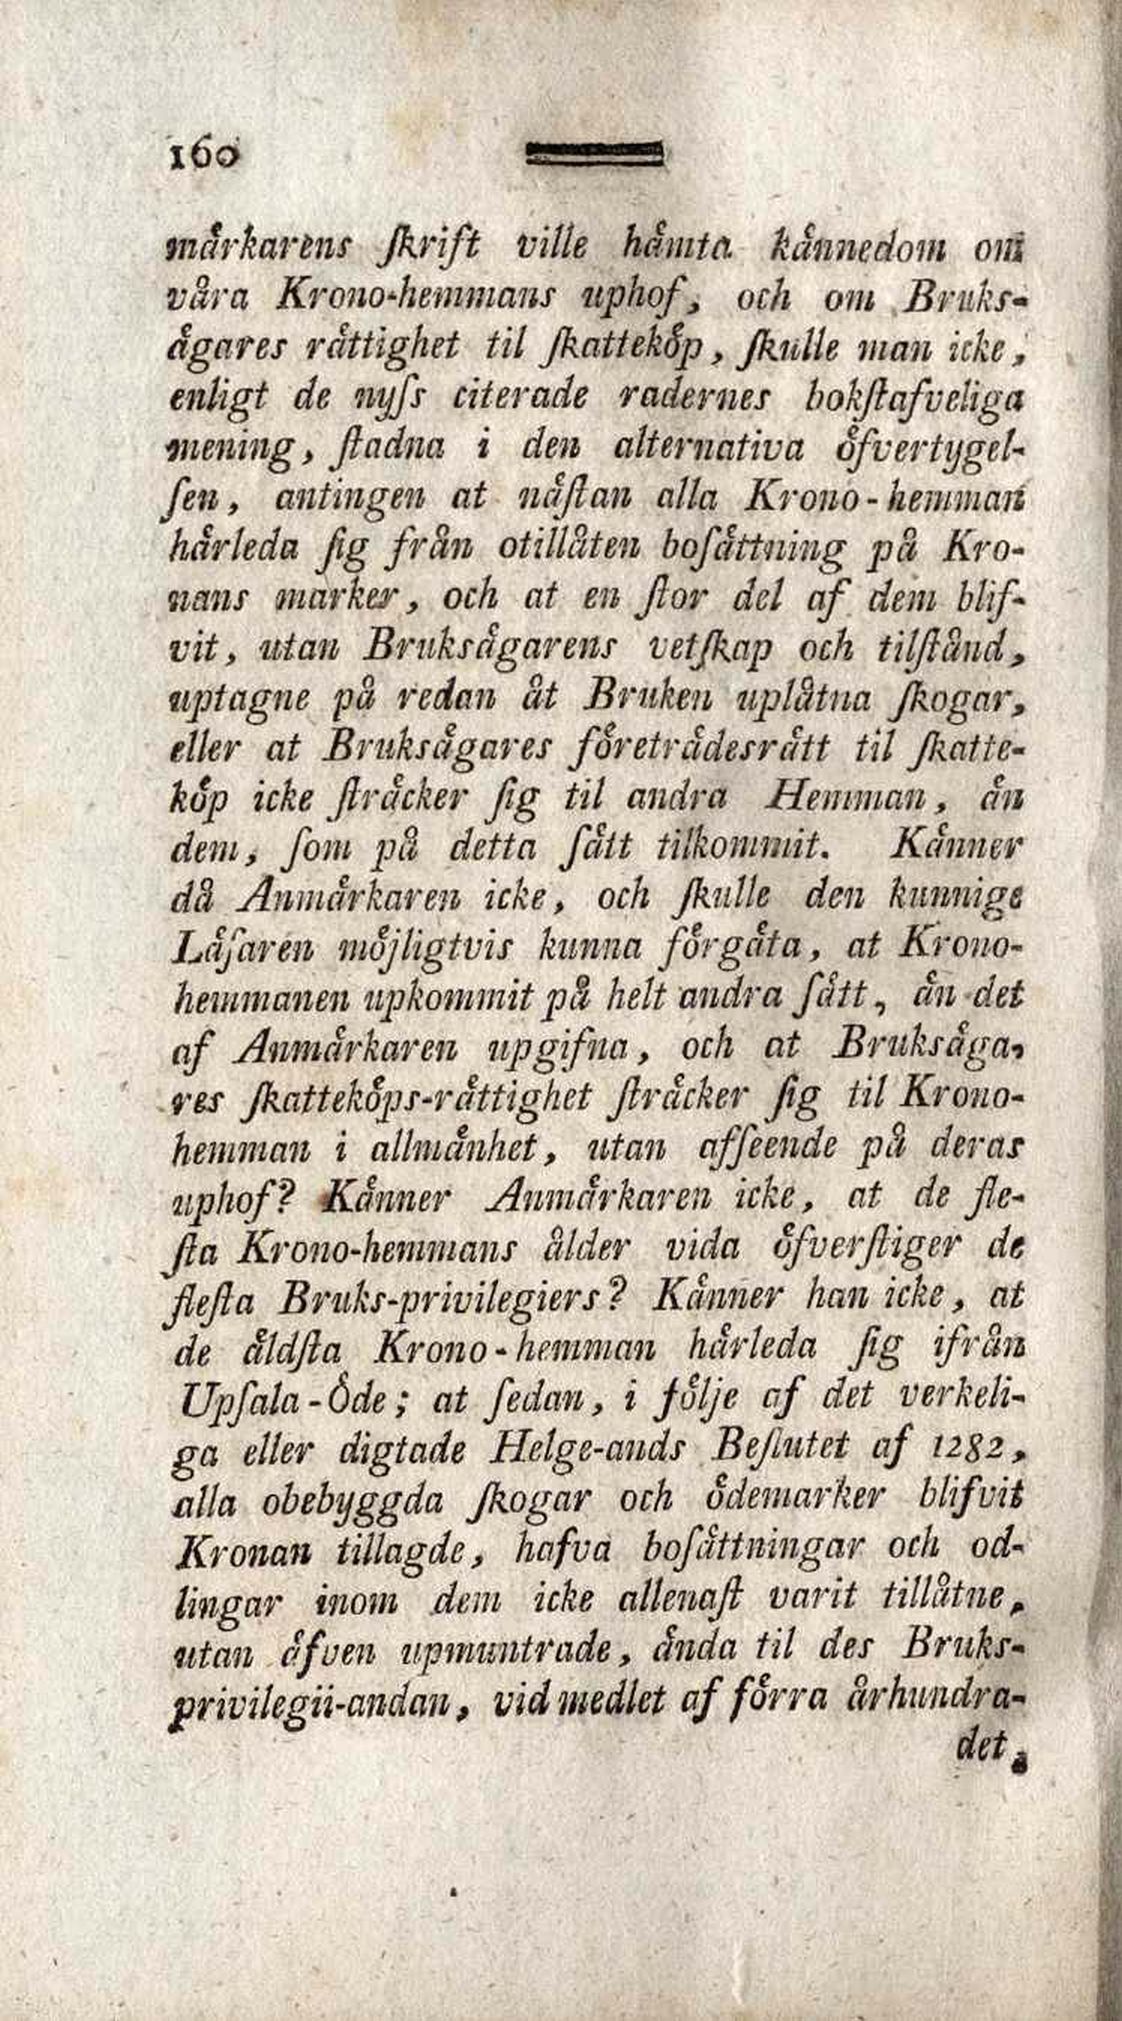 160
mårkarens ſkrift ville håmta kånnedom om
våra Krono-hemmans uphof, och om Bruks-
ågares råttighet til ſkatteköp, ſkulle man icke,
enligt de nyſs citerade radernes bokſtafveliga
mening, ſtadna i den alternativa öfvertygel-
ſen, antingen at nåſtan alla Krono-hemman
hårleda ſig från otillåten boſåttning på Kro-
nans marker, och at en ſtor del af dem blif-
vit, utan Bruksågarens vetſkap och tilſtånd,
uptagne på redan åt Bruken uplåtna ſkogar,
eller at Bruksågares företrådesrått til ſkatte-
köp icke ſtråcker ſig til andra Hemman, ån
dem, ſom på detta ſått tilkommit. Kånner
då Anmårkaren icke, och ſkulle den kunnige
Låſaren möjligtvis kunna förgåta, at Krono-
hemmanen upkommit på helt andra ſått, ån det
af Anmårkaren upgifna, och at Bruksåga-
res ſkatteköps-råttighet ſtråcker ſig til Krono-
hemman i allmånhet, utan afſeende på deras
uphof? Kånner Anmårkaren icke, at de fle-
ſta Krono-hemmans ålder vida öfverſtiger de
fleſta Bruks-privilegiers? Kånner han icke, at
de åldſta Krono-hemman hårleda ſig ifrån
Upſala-Öde; at ſedan, i följe af det verkeli-
ga eller digtade Helge-ands Beſlutet af 1282,
alla obebyggda ſkogar och ödemarker blifvit
Kronan tillagde, hafva boſåttningar och od-
lingar inom dem icke allenaſt varit tillåtne,
utan åfven upmuntrade, ånda til des Bruks-
privilegii-andan, vid medlet af förra århundra-
det,